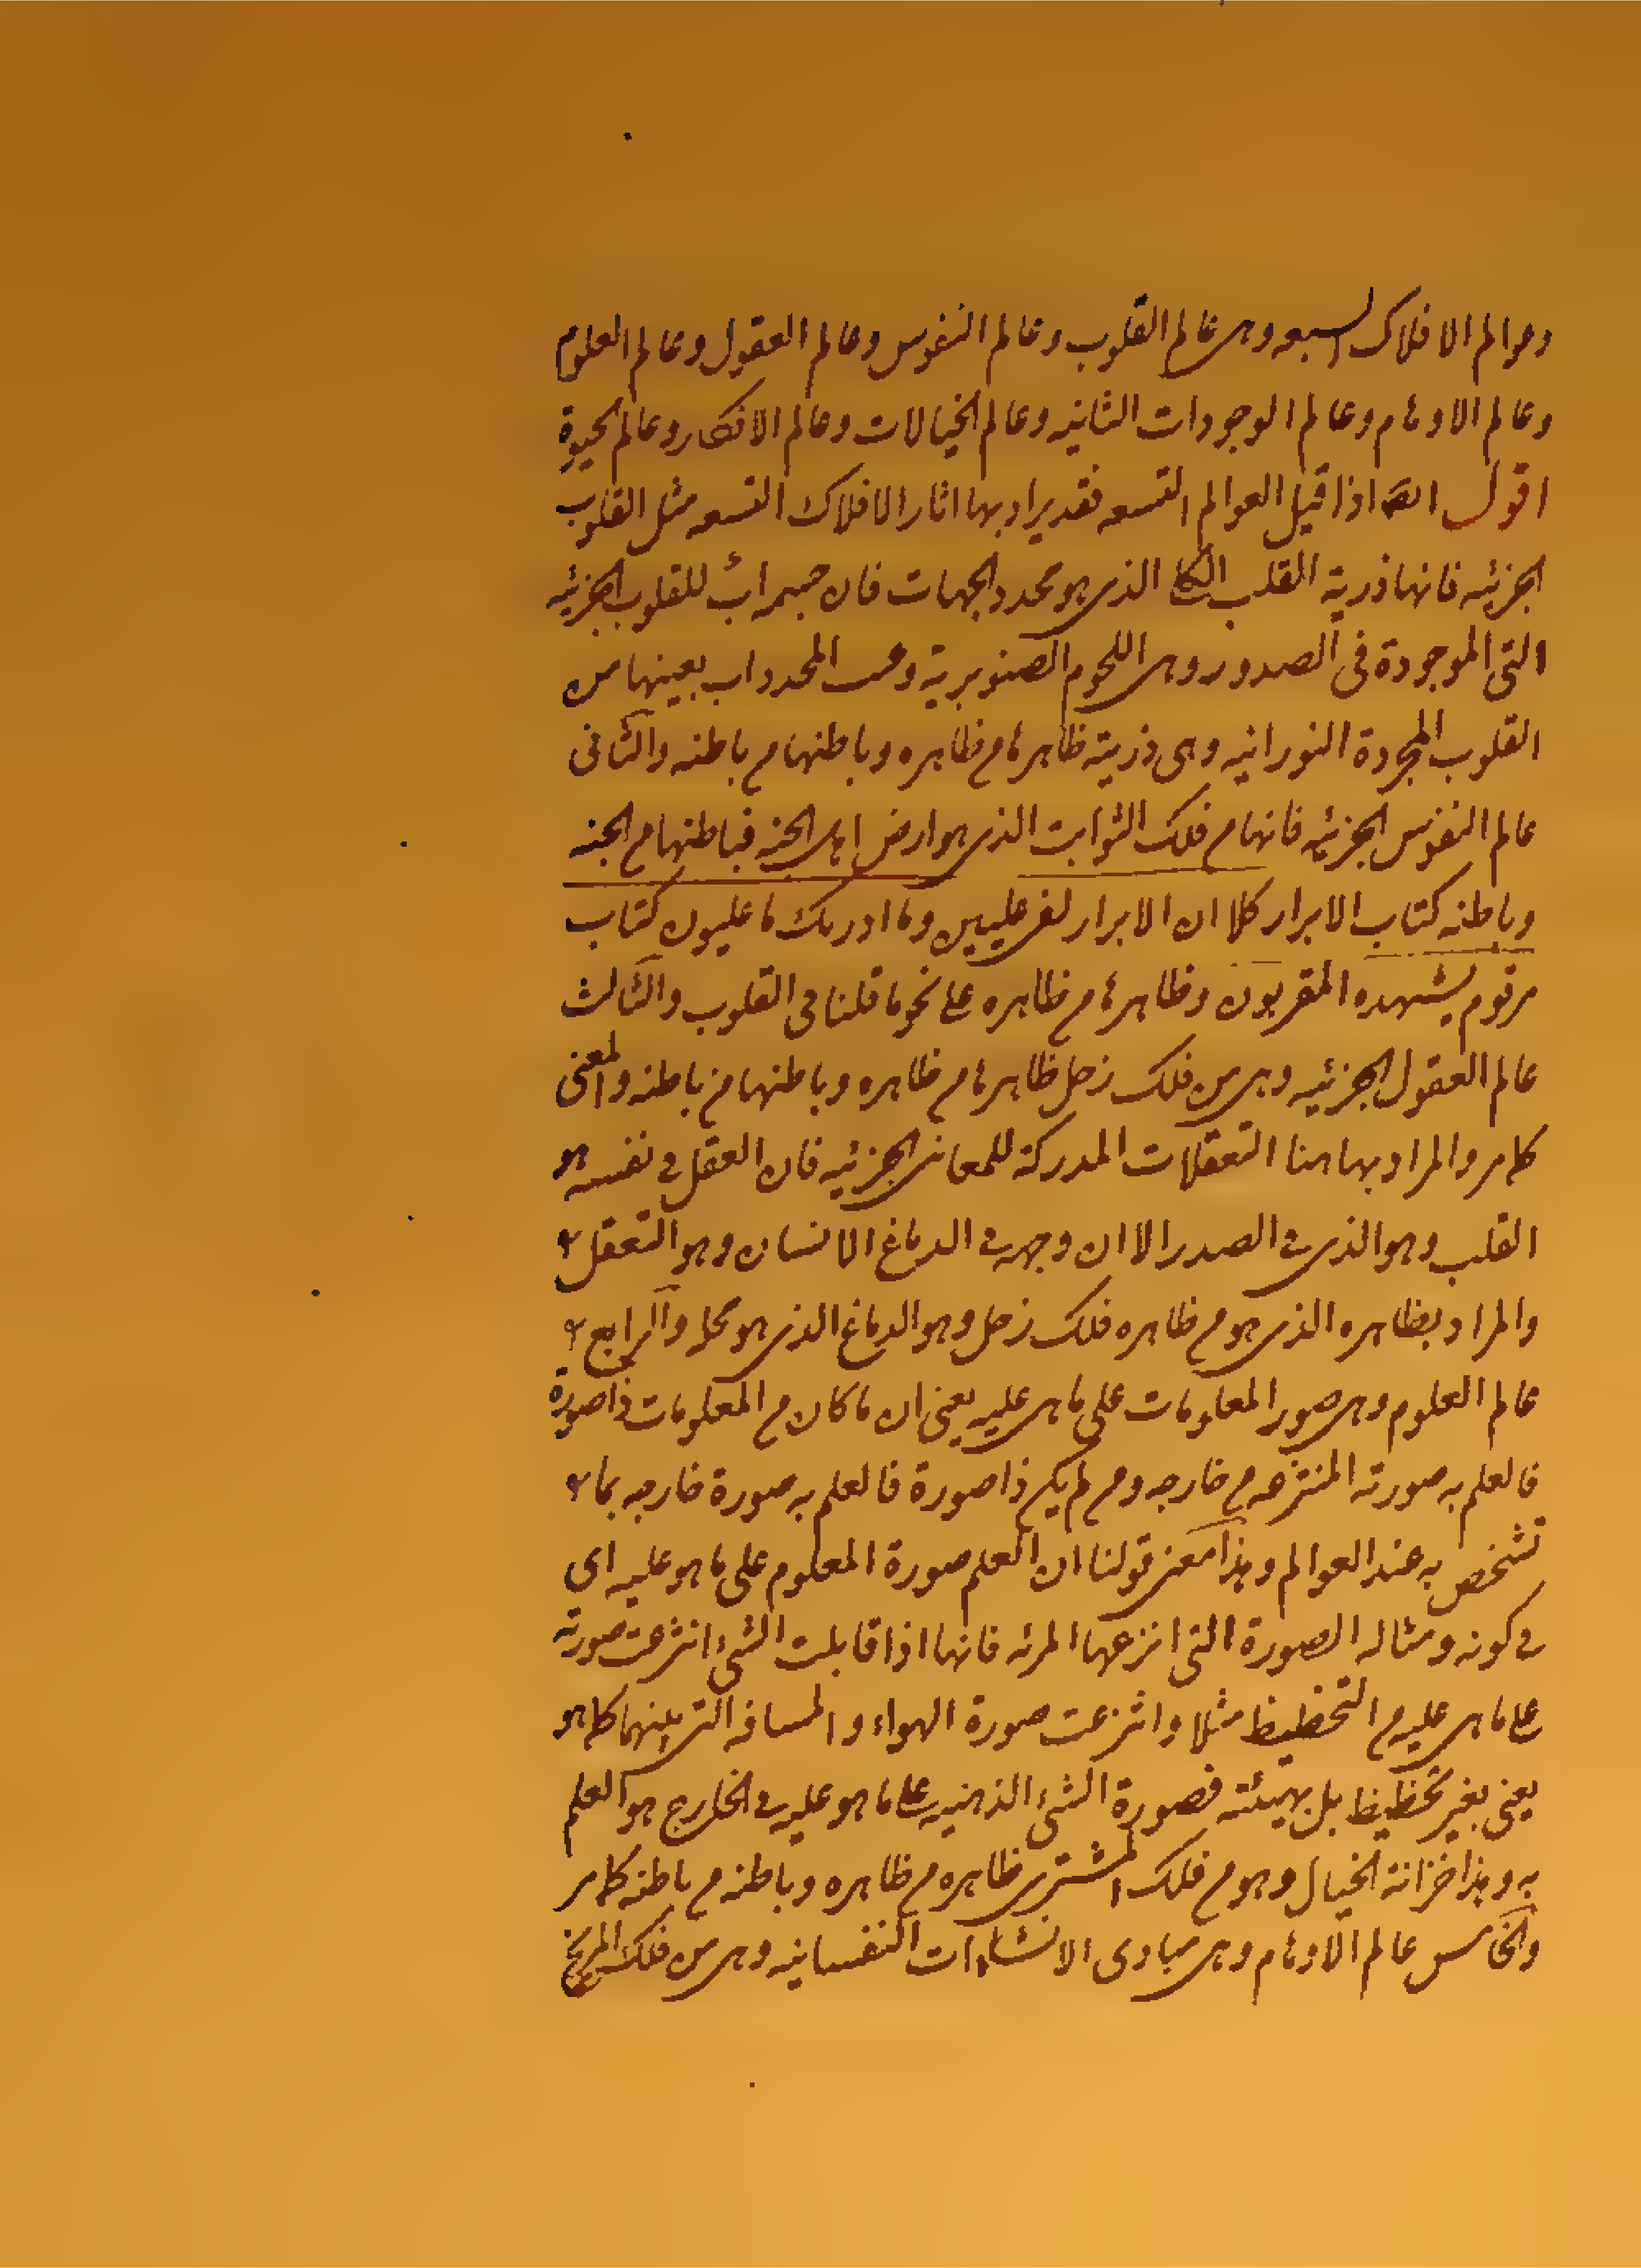 وعوالم الافلاك السبعه وهى عالم القلوب وعالم النفوس وعالم العقول وعالم العلوم
وعالم الاوهام وعالم الوجودات الثانيه وعالم الخيالات وعالم الافكار وعالم الحيوة
اقول اذا قيل العوالم التسعه فقد يراد بها اثار الافلاك التسعه مثل القلوب
الجزئيه فانها ذرية القلب الذى هو محدد الجهات فان جسمه اب للقلوب الجزئيه
التى الموجودة فى الصدور وهى اللحوم الصنوبرية المحدد اب بعينها من
القلوب المجردة النورانيه وهى ذرية ظاهرها م ظاهره وباطنها م باطنه والثانى
عالم النفوس الجزئيه فانها م فلك الثوابت الذى هو ارض الجنه فباطنها م الجنه
وباطنه كتاب الابرار كلا ان الابرار لفى عليين وما ادريك ما عليون كتاب
مرقوم يشهده المقربون وظاهرها م ظاهره على نحو ما قلنا فى القلوب والثالث
عالم العقول الجزئيه وهى من فلك زحل ظاهرها م ظاهره وباطنها من باطنه والمعنى
كما مر والمراد بها هنا التعقلات المدركة للمعانى الجزئيه فان العقل فى نفسه هو
القلب وهو الذى فى الصدر الا ان وجهه فى الدماغ الانسان وهو التعقل
والمراد بظاهره الذى هو م ظاهره فلك زحل وهو الدماغ الذى هو محله والرابع
عالم العلوم وهى صور المعلومات على ما هى عليه يعنى ان ما كان م المعلومات ذا صورة
فالعلم به صورته المنتزعه م خارجه وم لم يكن ذا صورة فالعلم به صورة خارجه بما
تشخص به عند العوالم وهذا معنى قولنا ان العلم صورة المعلوم على ما هو عليه اى
فى كونه ومثاله الصورة التى انتزعها المرئه فانها اذا قابلت الشئ انتزعت صورته
على ما هى عليه م التخطيط مثلا وانتزعت صورة الهواء والمسافه التى بينهما كما هو
يعنى بغير تخطيط بل بهيئته فصورة الشئ الذهنيه على ما هو عليه فى الخارج هو العلم
به وهذا خزانة الخيال وهو م فلك المشترى ظاهره م ظاهره وباطنه م باطنه كما مر
والخامس عالم الاوهام وهى مبادى الانشاءات النفسانيه وهى من فلك المريخ